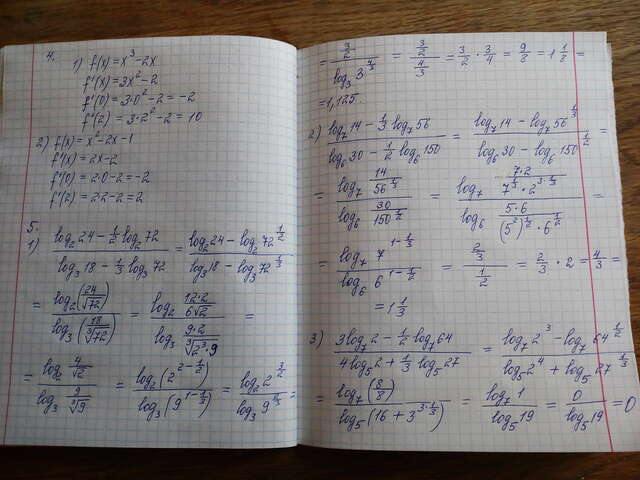 4.
1) f(x) = x³ - 2x
f'(x) = 3x² - 2
f'(0) = 3·0² - 2 = -2
f'(2) = 3·2² - 2 = 10
2) f(x) = x² - 2x - 1
f'(x) = 2x - 2
f'(0) = 2·0 - 2 = -2
f'(2) = 2·2 - 2 = 2
5.
1) (log₂ 24 - 1/2 log₂ 72) / (log₃ 18 - 1/3 log₃ 72) = (log₂ 24 - log₂ 72^(1/2)) / (log₃ 18 - log₃ 72^(1/3))
= log₂(24/√72) / log₃(18/∛72) = log₂ (12·2)/(6√2) / log₃ (9·2)/∛(2³·9) =
= log₂ 4/√2 / log₃ 9/∛9 = log₂(2^(2-1/2)) / log₃(9^(1-1/3)) = log₂ 2^(3/2) / log₃ 9^(2/3) =
= (3/2) / log₃ 3^(4/3) = (3/2)/(4/3) = 3/2 · 3/4 = 9/8 = 1 1/8 =
= 1,125.
2) (log₇ 14 - 1/3 log₇ 56) / (log₆ 30 - 1/2 log₆ 150) = (log₇ 14 - log₇ 56^(1/3)) / (log₆ 30 - log₆ 150^(1/2)) =
= log₇ 14/56^(1/3) / log₆ 30/150^(1/2) = log₇ (7·2)/(7^(1/3)·2^(3·1/3)) / log₆ (5·6)/((5²)^(1/2)·6^(1/2)) =
= log₇ 7^(1-1/3) / log₆ 6^(1-1/2) = (2/3)/(1/2) = 2/3 · 2 = 4/3 =
= 1 1/3
3) (3log₇ 2 - 1/2 log₇ 64) / (4log₅ 2 + 1/3 log₅ 27) = (log₇ 2³ - log₇ 64^(1/2)) / (log₅ 2⁴ + log₅ 27^(1/3))
= log₇(8/8) / log₅(16 + 3^(3·1/3)) = log₇ 1 / log₅ 19 = 0 / log₅ 19 = 0